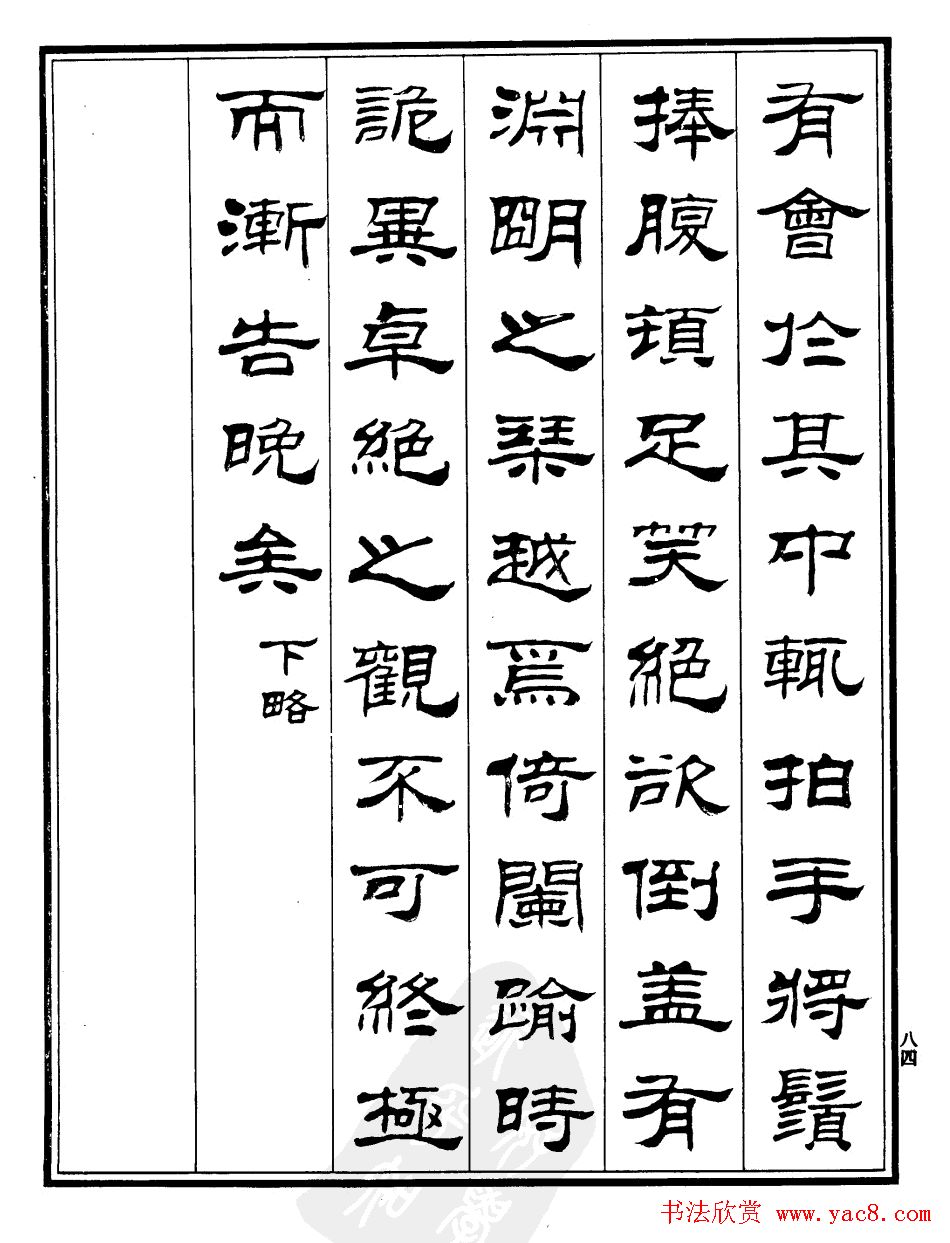 有會於其中輒拍手將鬚
捧腹頓足笑絕欲倒盖有
淵明之琴越焉倚闌踰時
詭異卓絕之觀不可終極
而漸告晚矣
下略
八四
书法欣赏 www.yac8.com